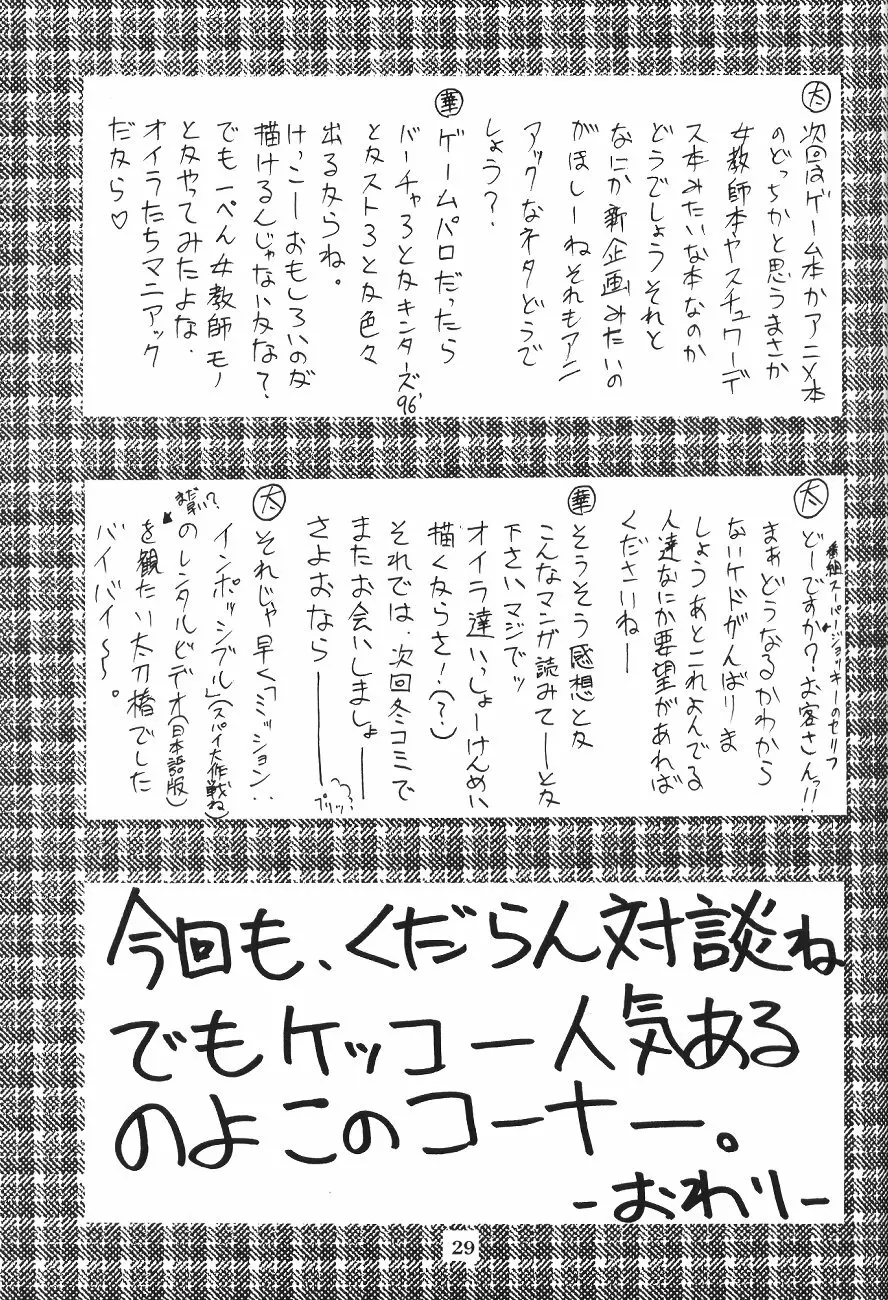 太 次回はゲーム本かアニメ本
のどっちかと思うまさか
女教師本やスチュワーデ
ス本みたいな本なのか
どうでしょうそれと
なにか新企画みたいの
がほしーねそれもアニ
アックなネタどうで
しょう？
華 ゲームパロだったら
バーチャ3とかキンターズ96'
とかスト3とか色々
出るからね。
けっこーおもしろいのが
描けるんじゃないかな？
でも一ぺん女教師モノ
とかやってみたよな.
オイラたちマニアック
だから♡
太 どーですか？お客さんっ!!
番組スーパージョッキーのセリフ
まぁどうなるかわから
ないケドがんばりま
しょうあとこれよんでる
人達なにか要望があれば
くださいねー
華 そうそう感想とか
こんなマンガ読みてーとか
下さいマジでッ
オイラ達いっしょーけんめい
描くからさ！(？)
それでは、次回冬コミで
またお会いしましょー
さよおならーーー
プリッ？
太 それじゃ早く「ミッション:
インポッシブル」(スパイ大作戦ね)
のレンタルビデオ(日本語版)
を観たい太刀椿でした
バイバイ〜。
今回も、くだらん対談ね
でもケッコー人気ある
のよこのコーナー。
-おわり-
29